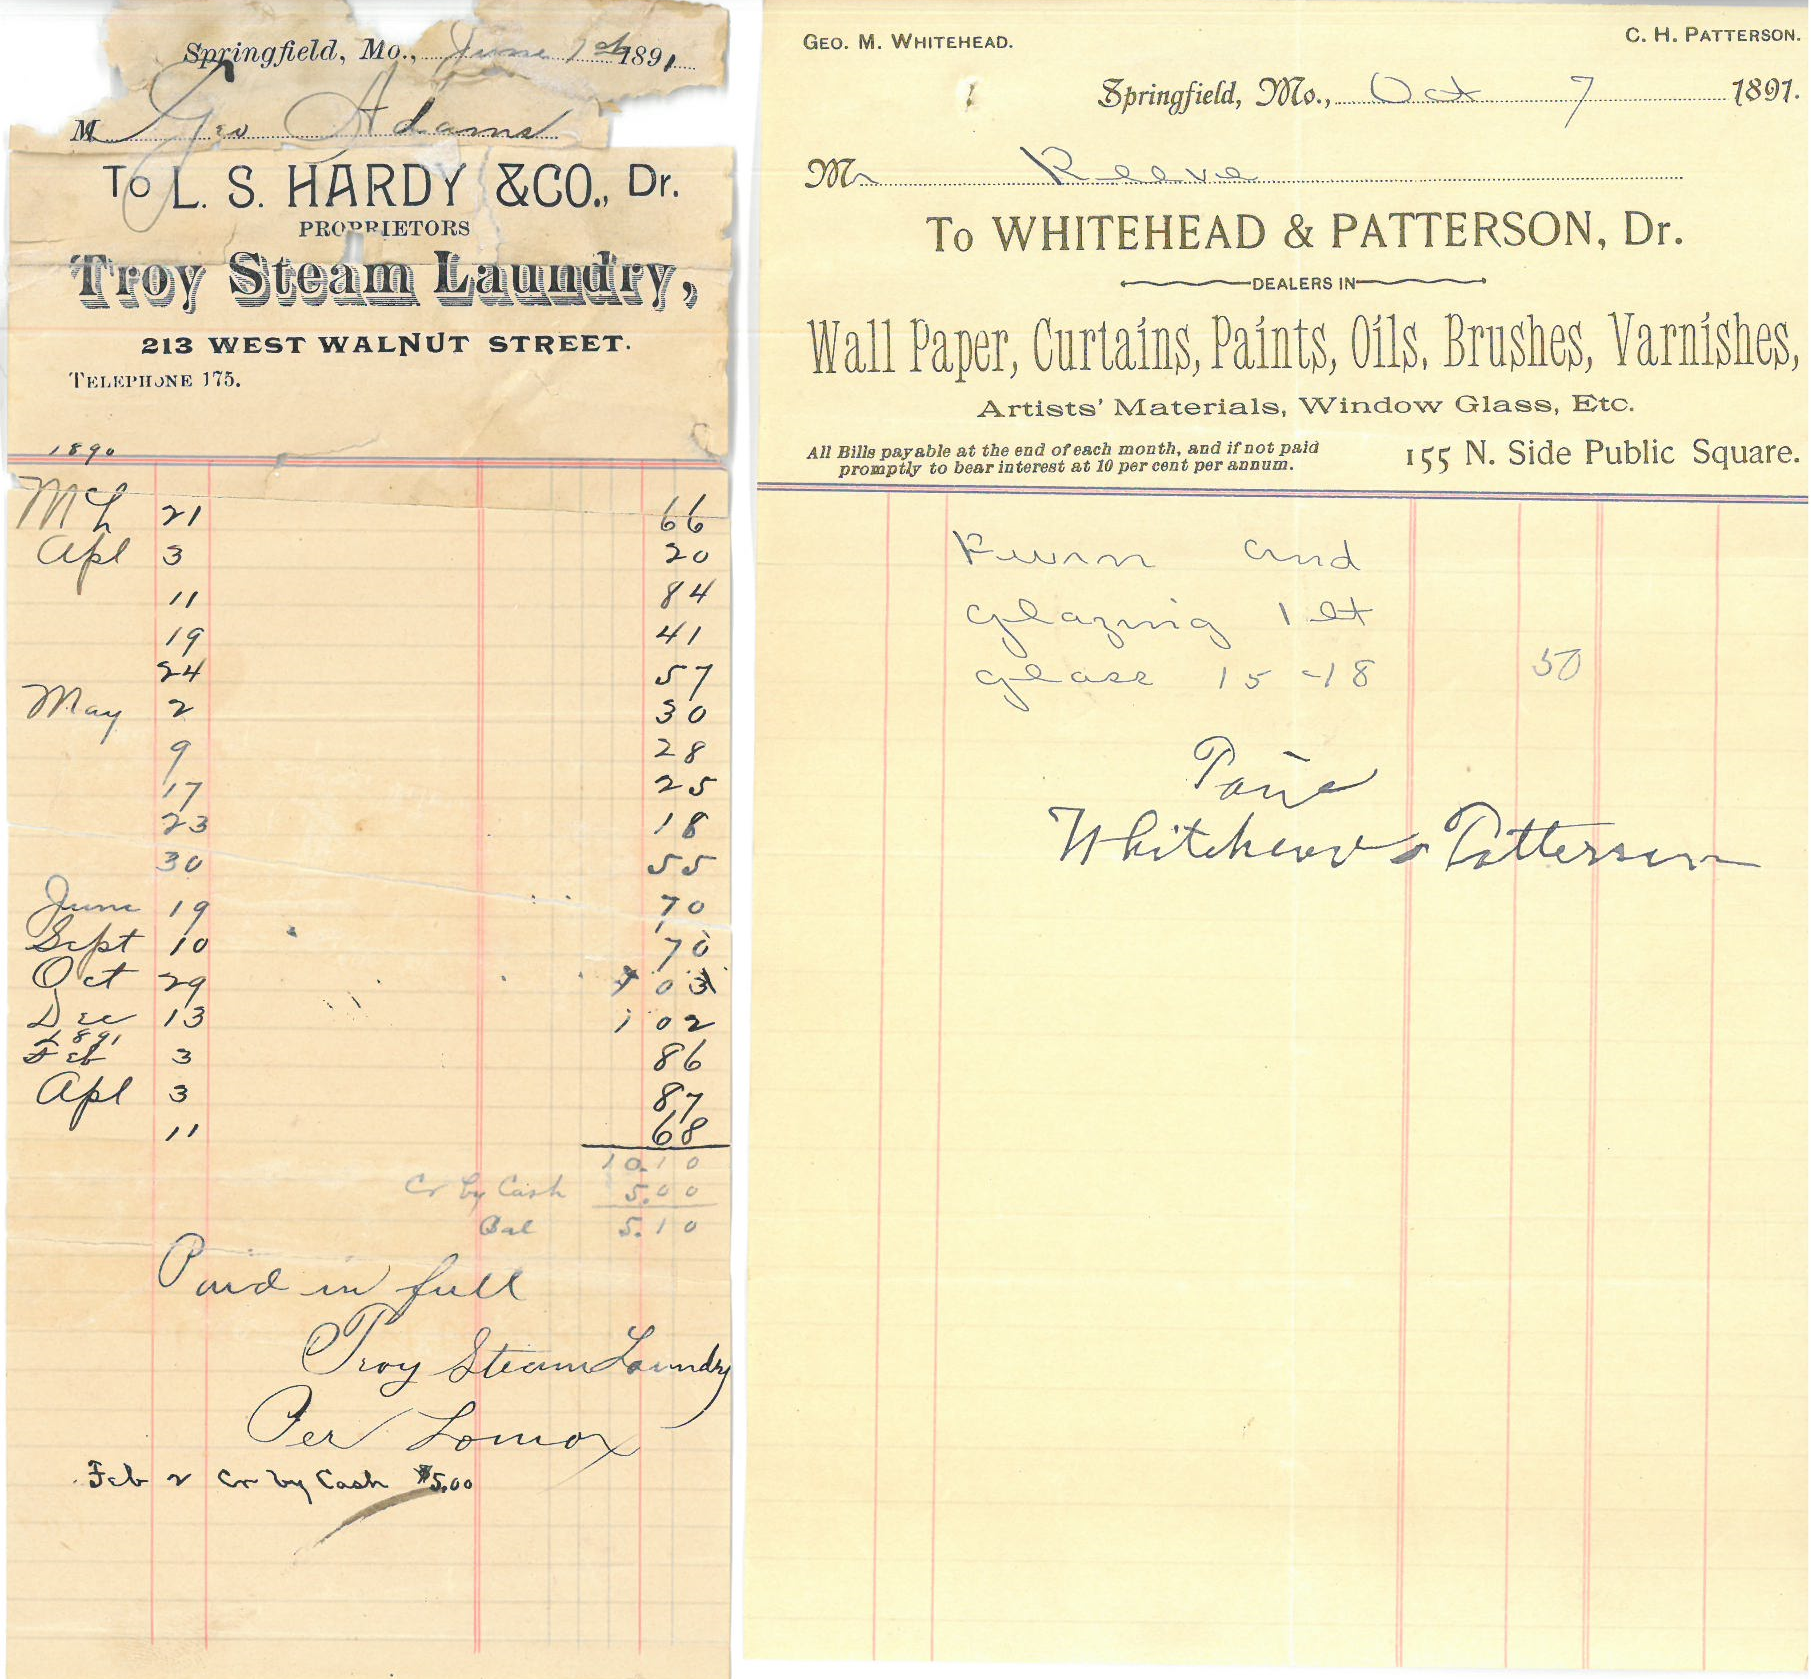 Springfield, Mo., June 1st 1891
M Geo Adams
To L. S. HARDY & CO., Dr.
PROPRIETORS
Troy Steam Laundry,
213 WEST WALNUT STREET.
TELEPHONE 175.
1890
Mch 21 66
Apl 3 20
11 84
19 41
24 57
May 2 30
9 28
17 25
23 18
30 55
June 19 70
Sept 10 70
Oct 29 03
Dec 13 1 02
1891
Feb 3 86
Apl 3 87
11 68
10.10
Cr by Cash 5.00
Bal 5.10
Paid in full
Troy Steam Laundry
Per Lomax
Feb 2 Cr by Cash $5.00
GEO. M. WHITEHEAD. C. H. PATTERSON.
Springfield, Mo., Oct 7 1891.
Mr Reeve
To WHITEHEAD & PATTERSON, Dr.
DEALERS IN
Wall Paper, Curtains, Paints, Oils, Brushes, Varnishes,
Artists' Materials, Window Glass, Etc.
All Bills payable at the end of each month, and if not paid
promptly to bear interest at 10 per cent per annum.
155 N. Side Public Square.
Furn and
glazing 1 lt
glass 15-18 50
Paid
Whitehead & Patterson